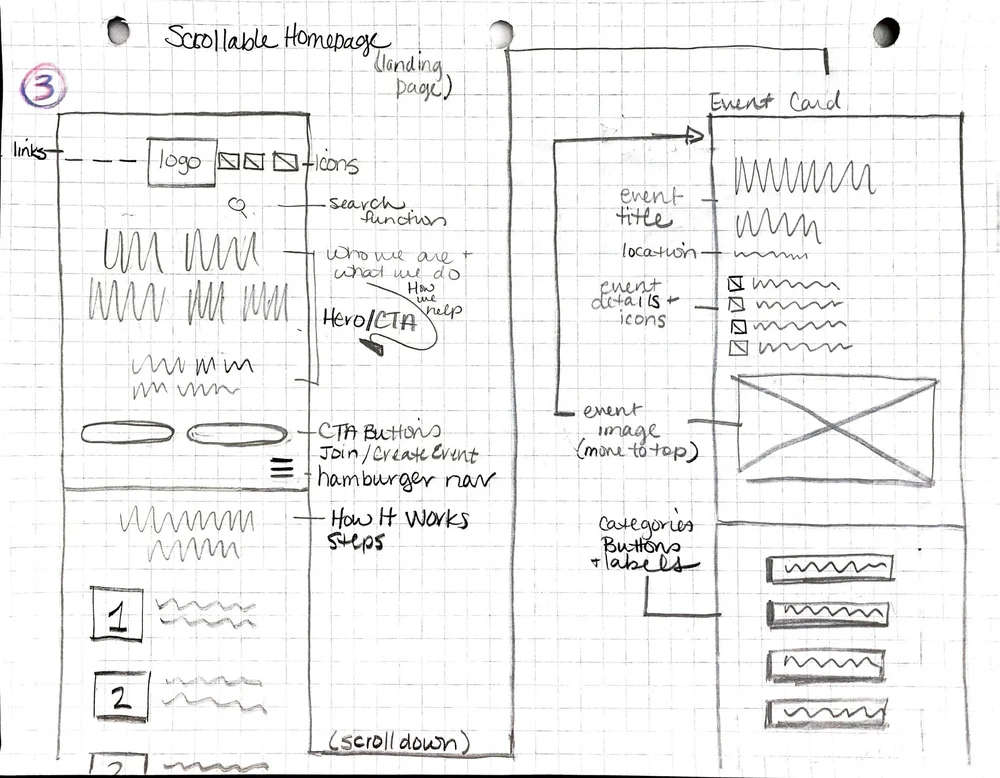 Scrollable Homepage
(landing
page)
3
links
logo
icons
search
function
who we are +
what we do
How
we
help
Hero/CTA
CTA Buttons
Join/Create Event
hamburger nav
How It Works
Steps
1
2
3
(scroll down)
Event Card
event
title
location
event
details +
icons
event
image
(move to top)
Categories
Buttons
+ labels